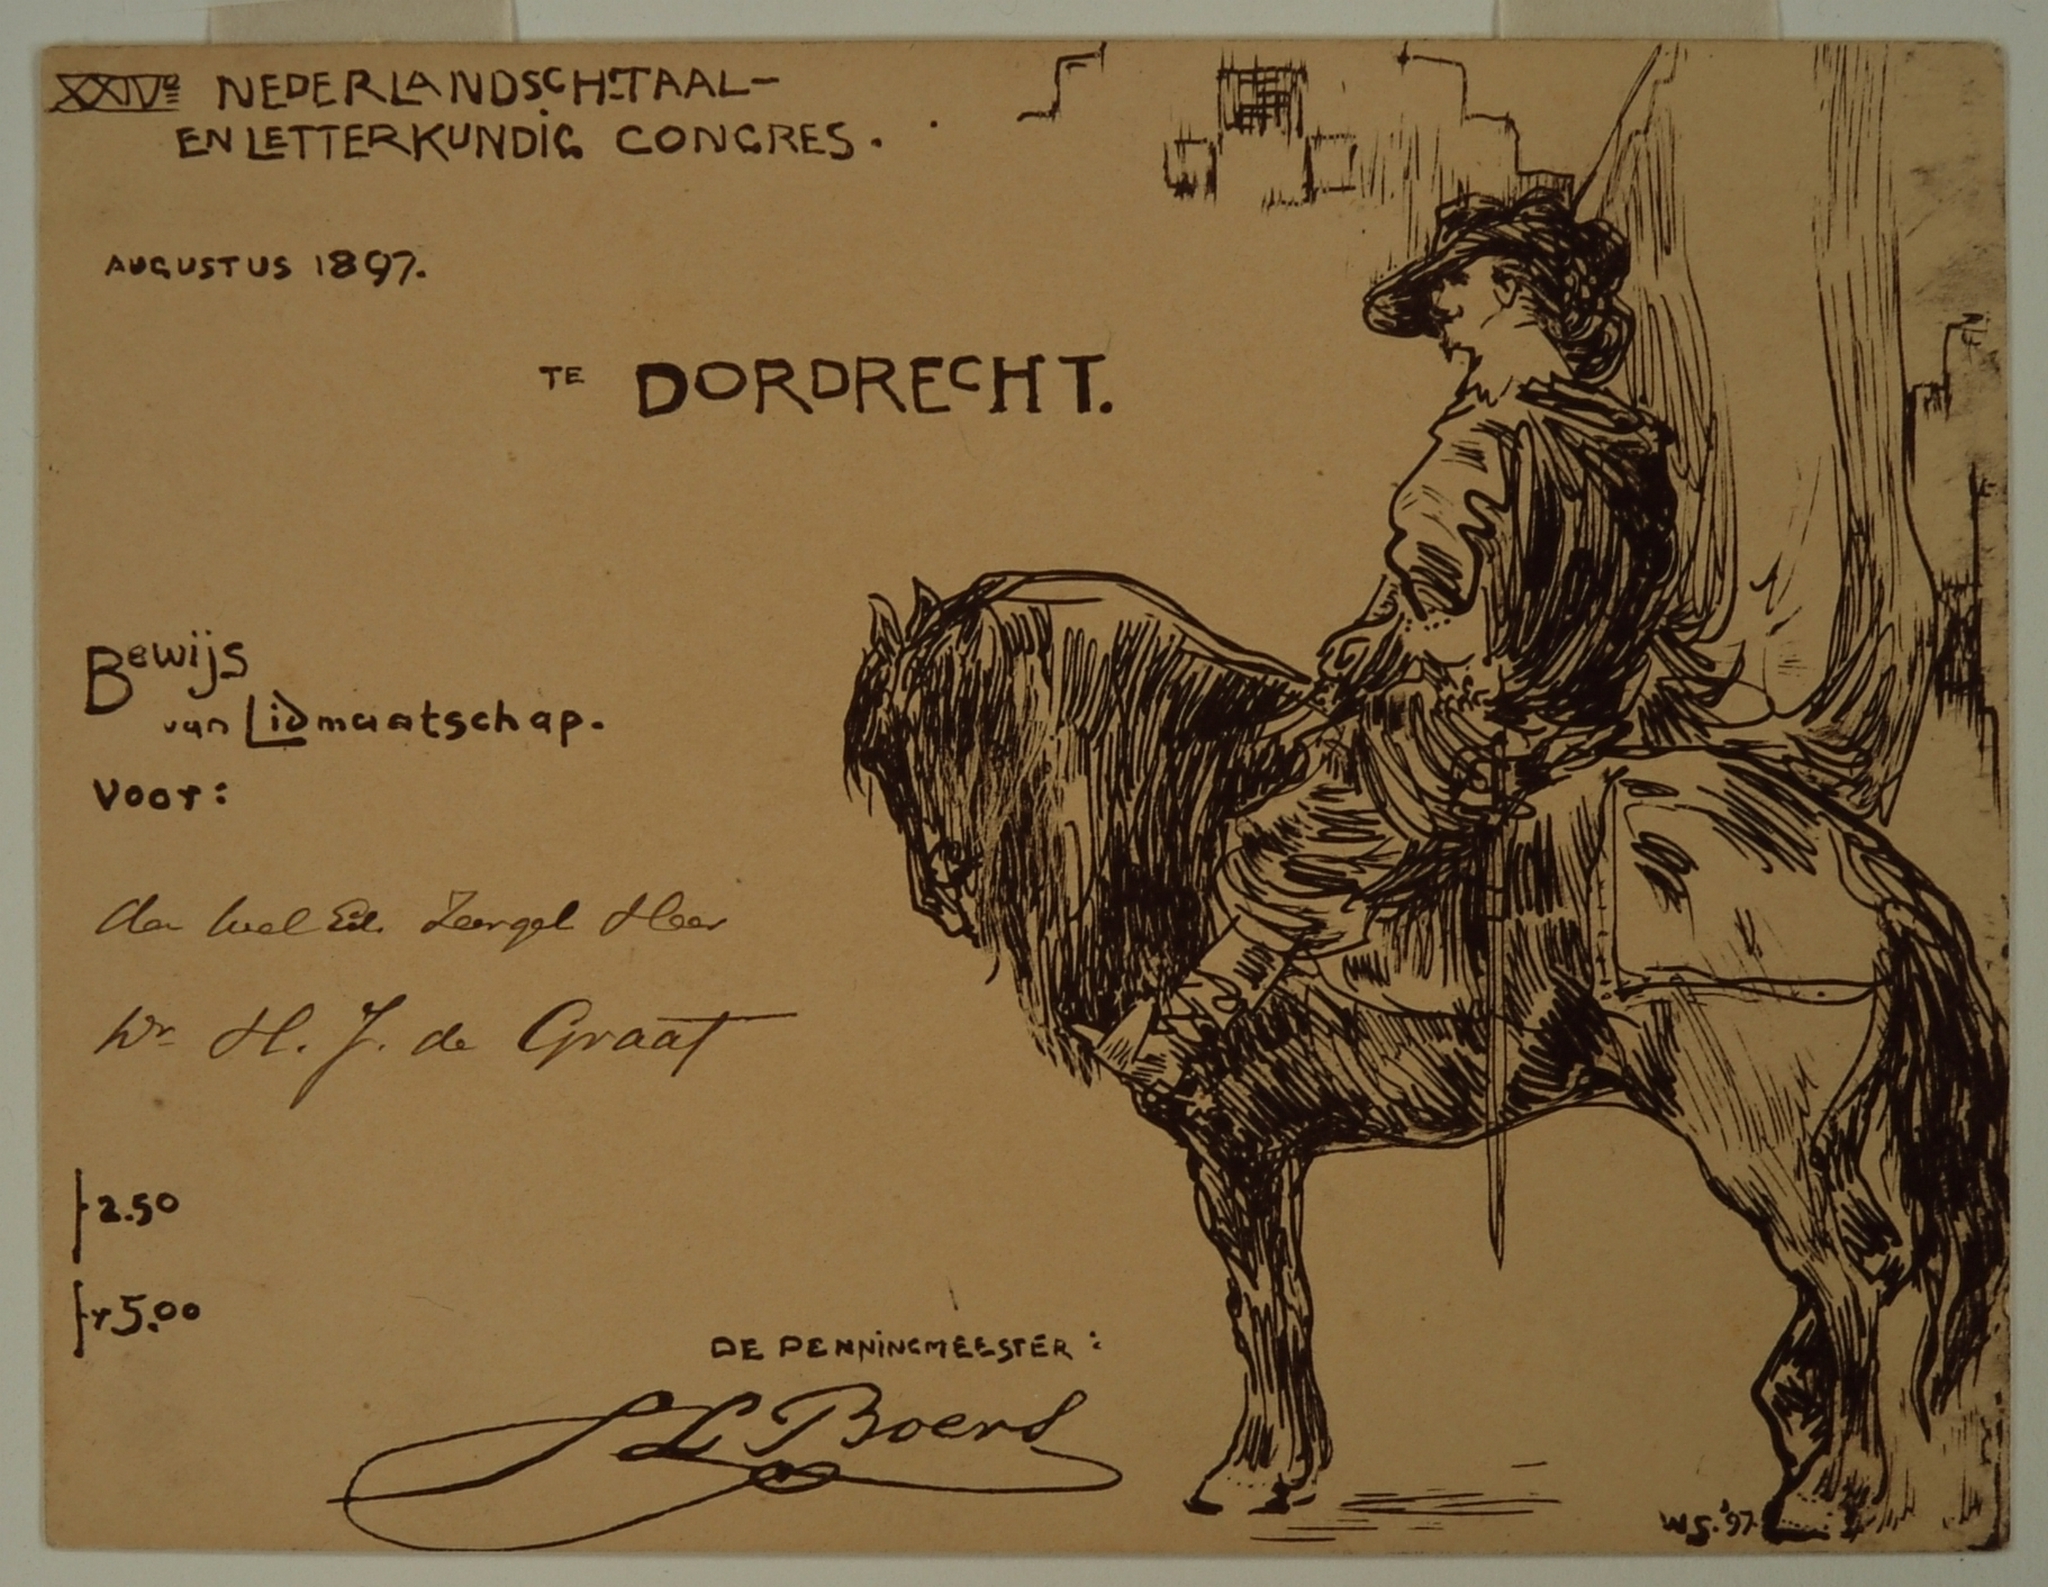 XXIVe NEDERLANDSCH-TAAL-
EN LETTERKUNDIG CONGRES.
AUGUSTUS 1897.
TE DORDRECHT.
Bewijs
van Lidmaatschap.
voor:
den Wel Ed. Zeergel Heer
Dr H. J. de Graaf
f 2.50
f 5.00
DE PENNINGMEESTER:
S L Boers
WS. '97